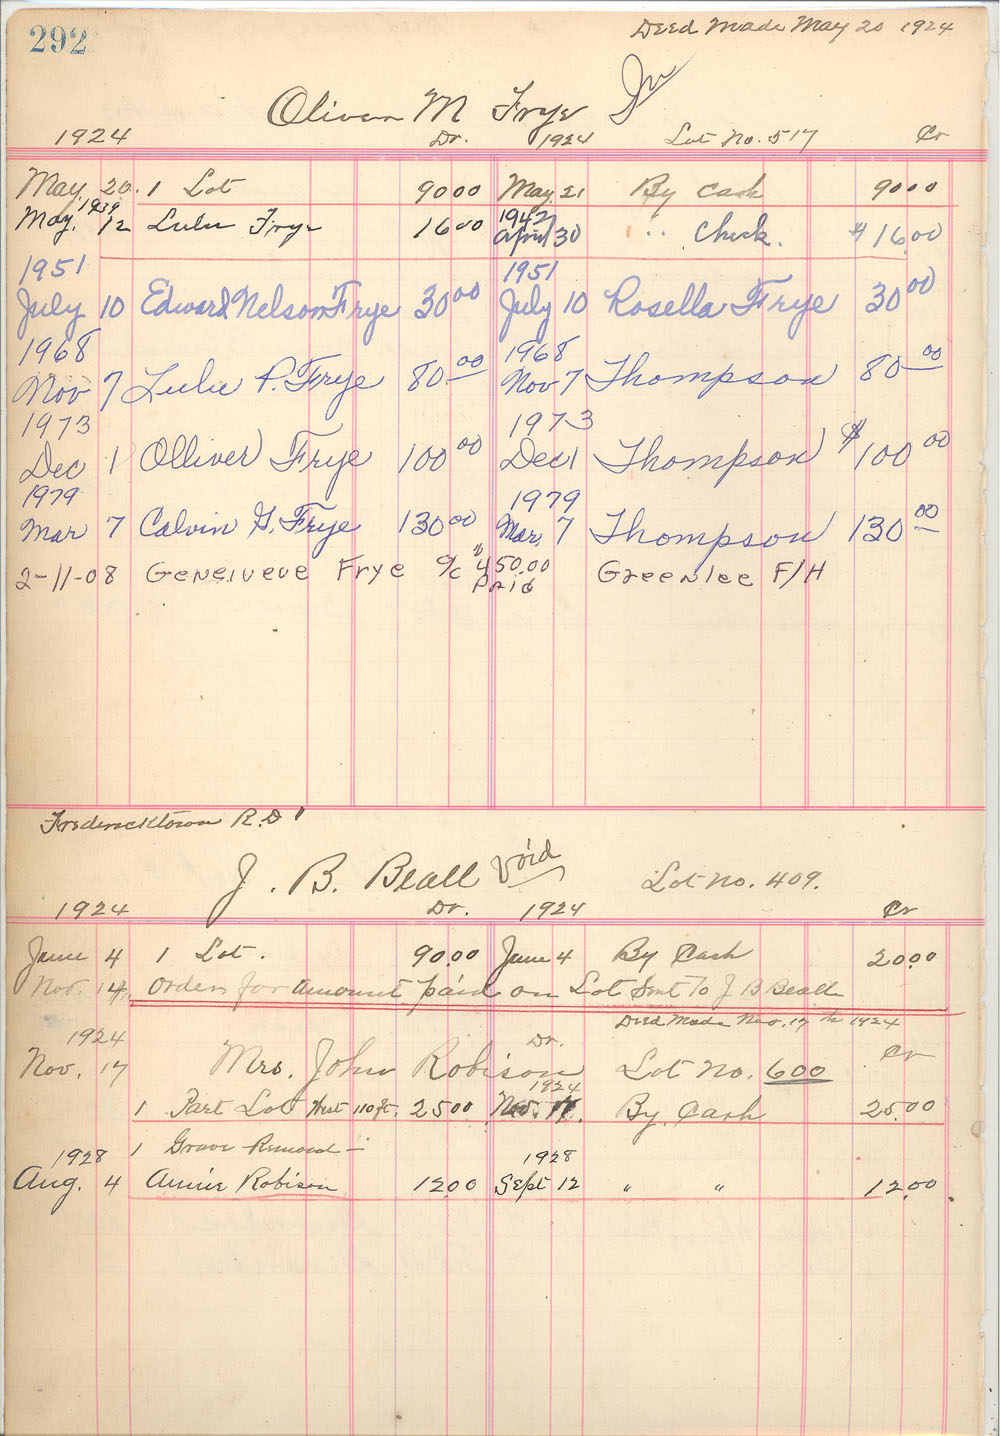 292
Deed Made May 20 1924
Oliver M Frye Jr
1924 Dr. 1924 Lot No. 517 Cr
May. 20. 1 Lot 90 00 May. 21 By Cash 90 00
1939 1942
May. 12 Lulu Frye 16 00 April 30 " Check. $16.00
1951 1951
July 10 Edward Nelson Frye 30 00 July 10 Rosella Frye 30 00
1968 1968
Nov 7 Lulu P. Frye 80 00 Nov 7 Thompson 80 00
1973 1973
Dec 1 Olliver Frye 100 00 Dec 1 Thompson $100 00
1979 1979
Mar 7 Calvin G. Frye 130 00 Mar. 7 Thompson 130 00
2-11-08 Geneiveve Frye O/C $450.00 Greenlee F/H
Paid
Fredericktown R.D 1
J. B. Beall Void Lot No. 409.
1924 Dr. 1924 Cr
June 4 1 Lot. 90.00 June 4 By Cash 20.00
Nov. 14 Order for amount paid on Lot Sent To J B Beall
Deed Made Nov. 17 th 1924
1924 Dr. Cr
Nov. 17 Mrs. John Robison Lot No. 600
1924
1 Part Lot West 110 ft. 25 00 Nov. 17. By Cash 25.00
1 Grave Removal —
1928 1928
Aug. 4 Annie Robison 12 00 Sept 12 " " 12.00